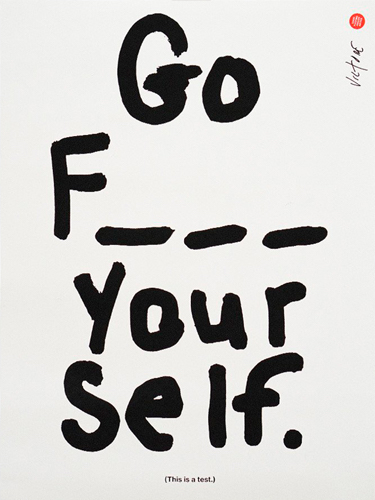 Go
F___
Your
Self.
(This is a test.)
Victore